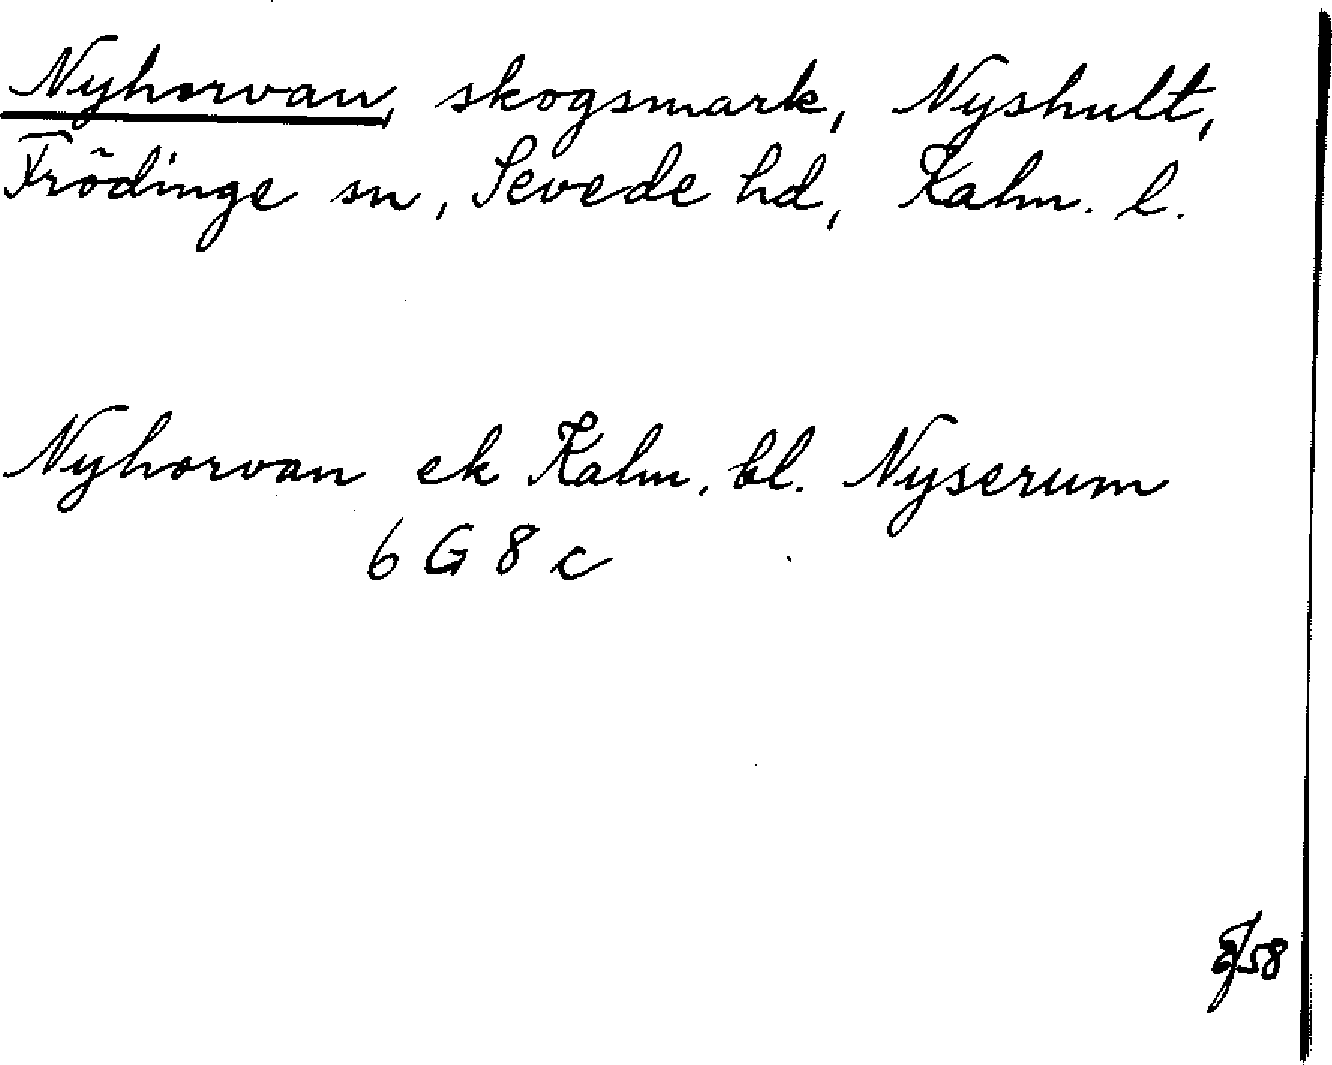 Nyhorvan, skogsmark, Nyshult,
Frödinge sn, Sevede hd, Kalm. l.
Nyhorvan ek Kalm. bl. Nyserum
6 G 8 c
58